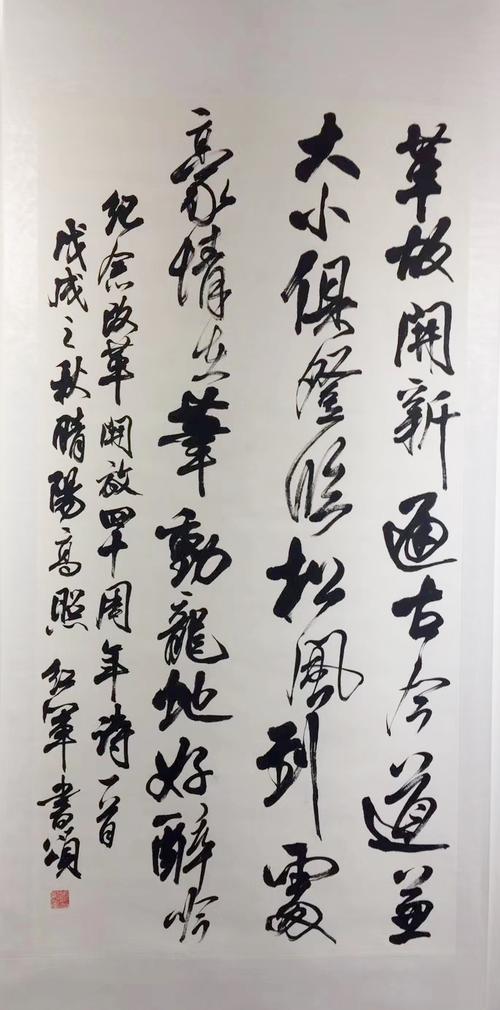 革故開新通古今道並
大小俱登臨松風到處
豪情生筆動龍虵好醉吟
纪念改革開放四十周年诗一首
戊戌之秋晴陽高照 红軍書頌